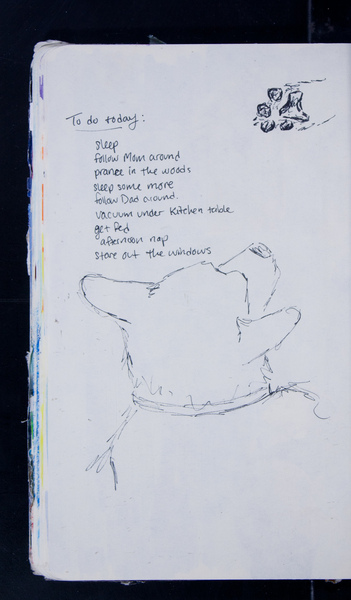 To do today:
sleep
follow Mom around
prance in the woods
sleep some more
follow Dad around.
vacuum under kitchen table
get fed
afternoon nap
stare out the windows